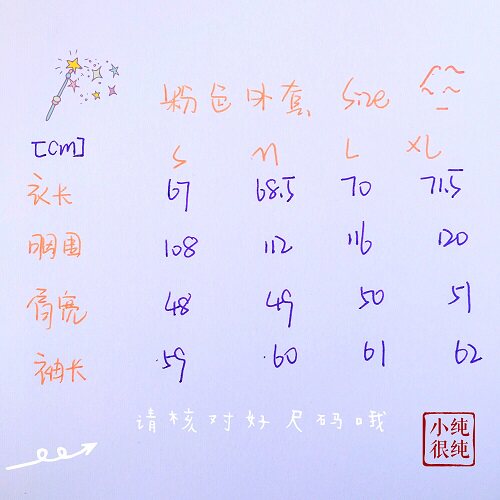 粉色外套 Size
[cm] S M L XL
衣长 67 68.5 70 71.5
胸围 108 112 116 120
肩宽 48 49 50 51
袖长 59 60 61 62
请核对好尺码哦
小纯
很纯